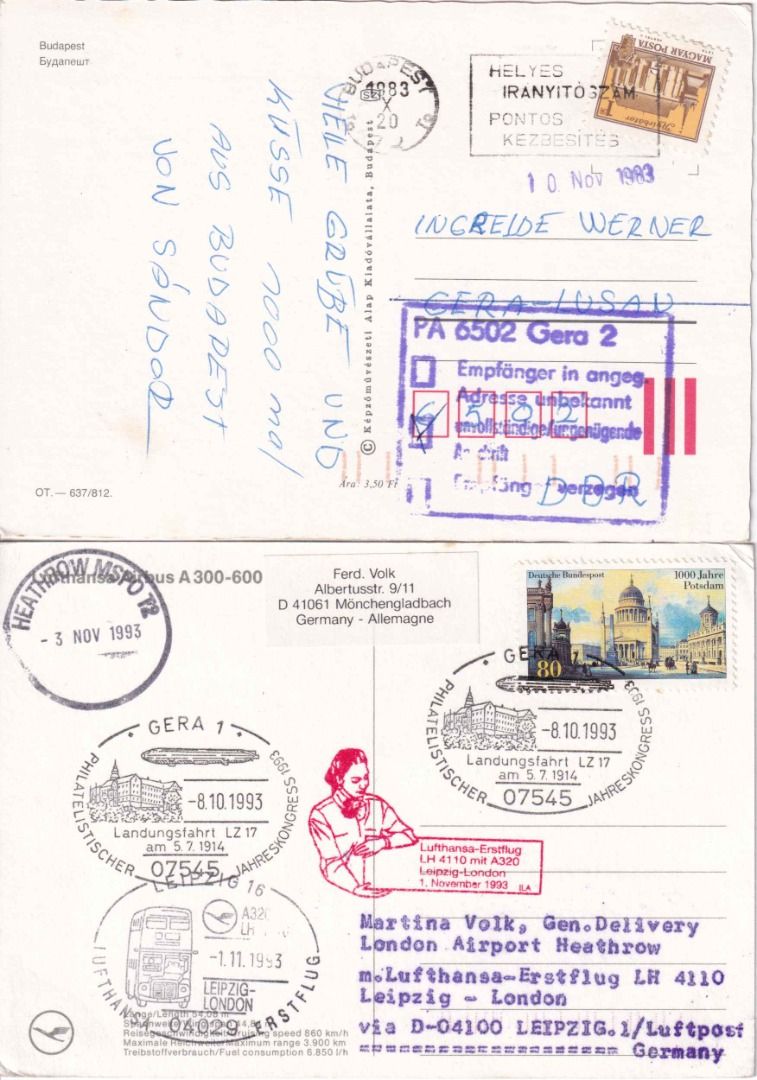 Budapest
Будапешт
BUDAPEST
1983
X
20
HELYES
IRÁNYÍTÓSZÁM
PONTOS
KÉZBESÍTÉS
MAGYAR POSTA
1Ft
Nyírbátor
10 NOV 1983
VIELE GRÜßE UND
KÜSSE 1000 mal
AUS BUDAPEST
VON SÁNDOR
© Képzőművészeti Alap Kiadóvállalata, Budapest
INGREIDE WERNER
GERA-LUSAN
PA 6502 Gera 2
Empfänger in angeg.
Adresse unbekannt
6 5 0 2
unvollständige/ungenügende
Anschrift
Empfänger verzogen
DDR
Ára: 3,50 Ft
OT. — 637/812.
Lufthansa Airbus A 300-600
HEATHROW MSPO T2
- 3 NOV 1993
Ferd. Volk
Albertusstr. 9/11
D 41061 Mönchengladbach
Germany - Allemagne
Deutsche Bundespost
1000 Jahre
Potsdam
80
GERA 1
-8.10.1993
Landungsfahrt LZ 17
am 5.7.1914
07545
PHILATELISTISCHER JAHRESKONGRESS 1993
GERA 1
-8.10.1993
Landungsfahrt LZ 17
am 5.7.1914
07545
PHILATELISTISCHER JAHRESKONGRESS 1993
Lufthansa-Erstflug
LH 4110 mit A320
Leipzig-London
1. November 1993 ILA
LEIPZIG 16
A320
LH
-1.11.1993
LEIPZIG-
LONDON
04029
LUFTHANSA ERSTFLUG
Martina Volk, Gen.Delivery
London Airport Heathrow
m.Lufthansa-Erstflug LH 4110
Leipzig - London
via D-04100 LEIPZIG.1/Luftpost
Germany
Länge/Length 54,08 m
Reisegeschwindigkeit/Cruising speed 860 km/h
Maximale Reichweite/Maximum range 3.900 km
Treibstoffverbrauch/Fuel consumption 6.850 l/h